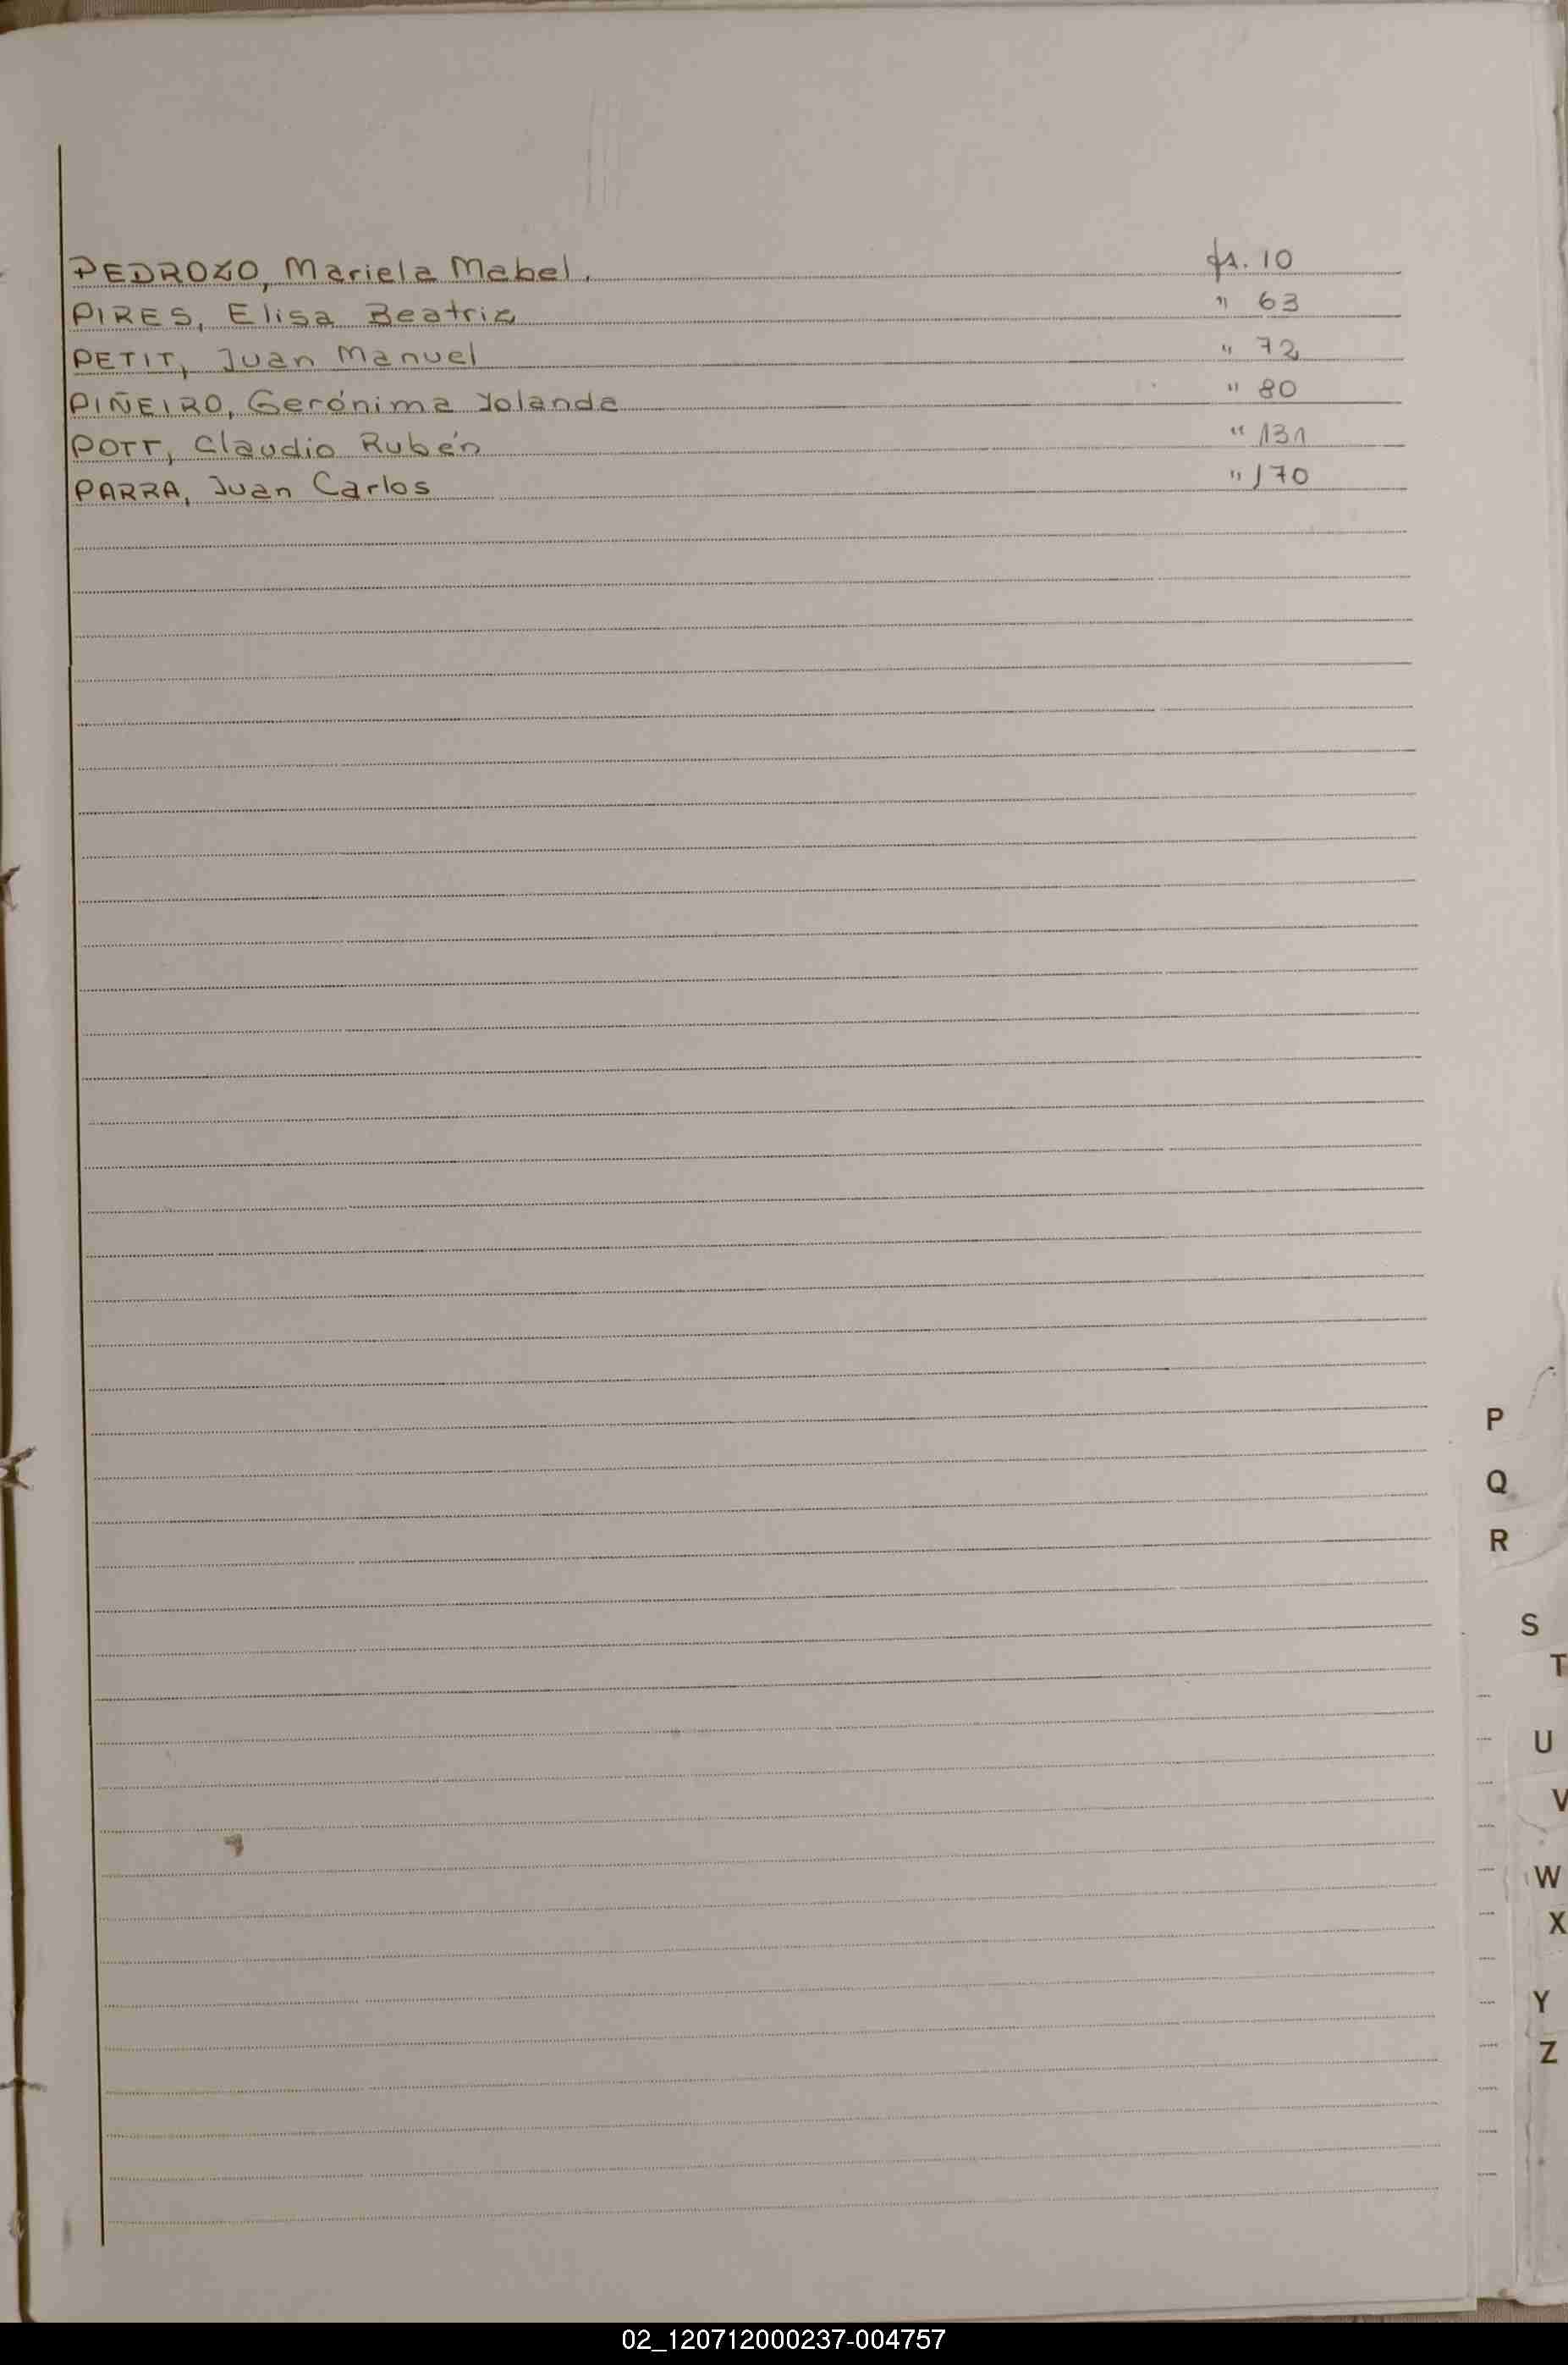 PEDROZO, Mariela Mabel. fs. 10
PIRES, Elisa Beatriz " 63
PETIT, Juan Manuel " 72
PIÑEIRO, Gerónima Yolanda " 80
POTT, Claudio Rubén " 131
PARRA, Juan Carlos " 170
P
Q
R
S
T
U
V
W
X
Y
Z
02_120712000237-004757